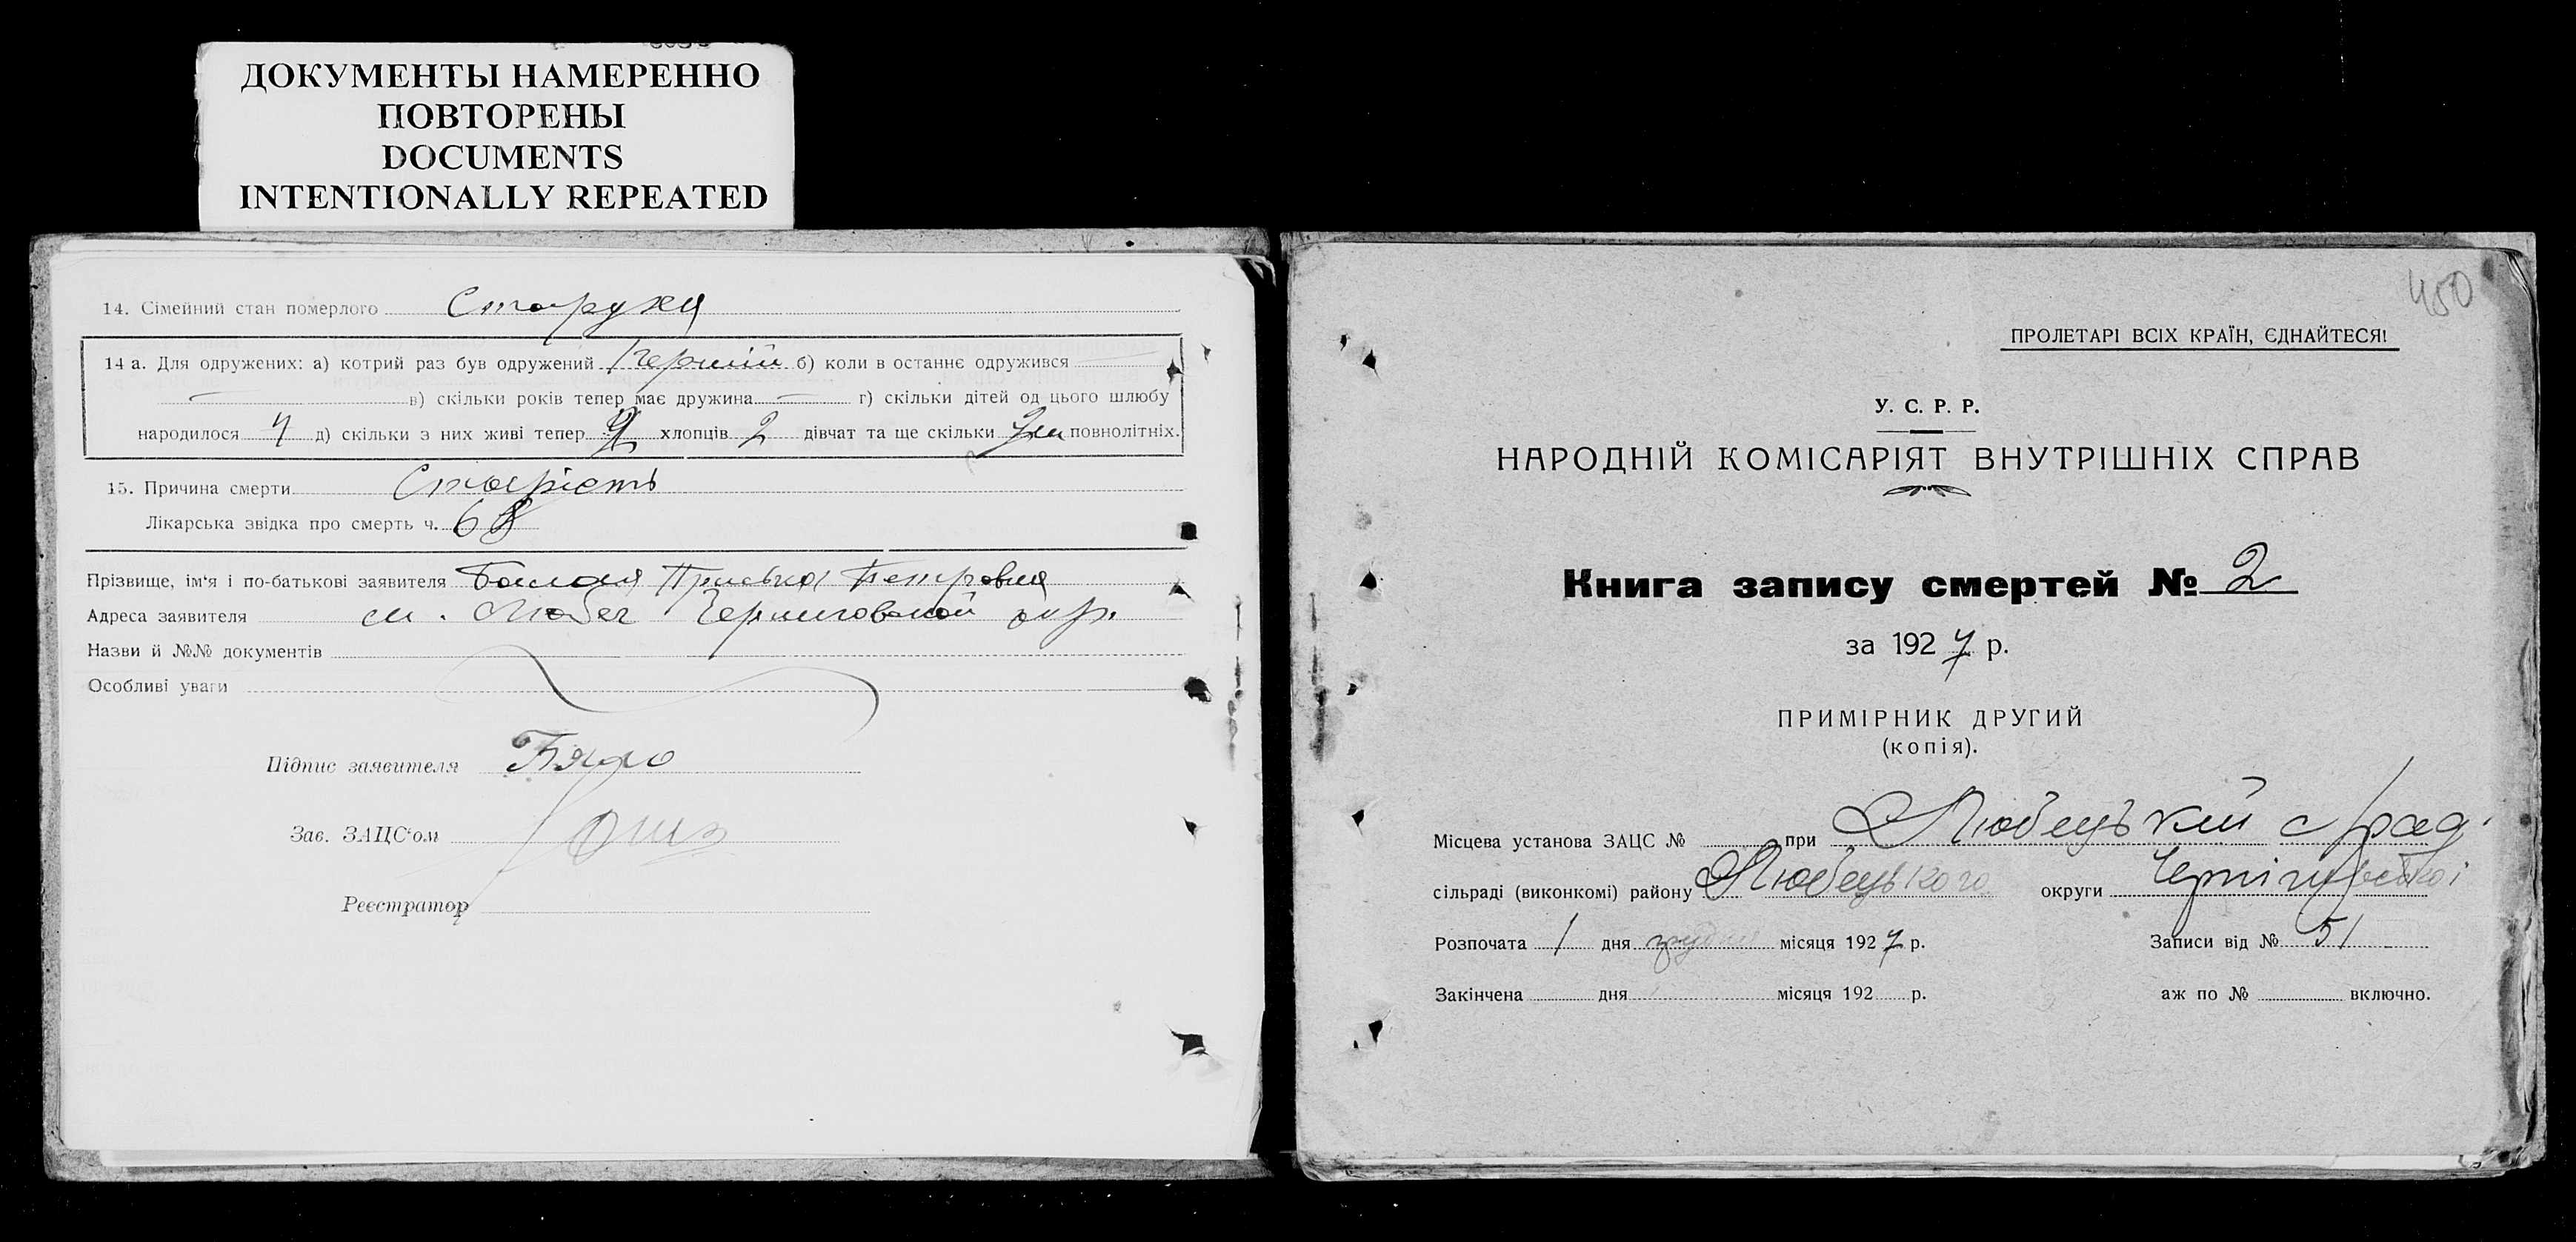 ДОКУМЕНТЫ НАМЕРЕННО
ПОВТОРЕНЫ
DOCUMENTS
INTENTIONALLY REPEATED
14. Сімейний стан померлого
14 а. Для одружених: а) котрий раз був одружений б) коли в останнє одружився
в) скільки років тепер має дружина г) скільки дітей од цього шлюбу
народилося 4 д) скільки з них живі тепер хлопців 2 дівчат та ще скільки повнолітніх.
15. Причина смерти Старість
Лікарська звідка про смерть ч. 68
Прізвище, ім'я і по-батькові заявителя Петровна
Адреса заявителя м. Любеч Черниговской окр.
Назви й №№ документів
Особливі уваги
Підпис заявителя
Зав. ЗАЦС'ом
Реєстратор
450
ПРОЛЕТАРІ ВСІХ КРАЇН, ЄДНАЙТЕСЯ!
У. С. Р. Р.
НАРОДНІЙ КОМІСАРІЯТ ВНУТРІШНІХ СПРАВ
Книга запису смертей № 2
за 1927 р.
ПРИМІРНИК ДРУГИЙ
(копія).
Місцева установа ЗАЦС № при Любецькій с/рад.
сільраді (виконкомі) району Любецького округи Чернігівської
Розпочата 1 дня грудня місяця 1927 р. Записи від № 51
Закінчена дня місяця 192 р. аж по № включно.